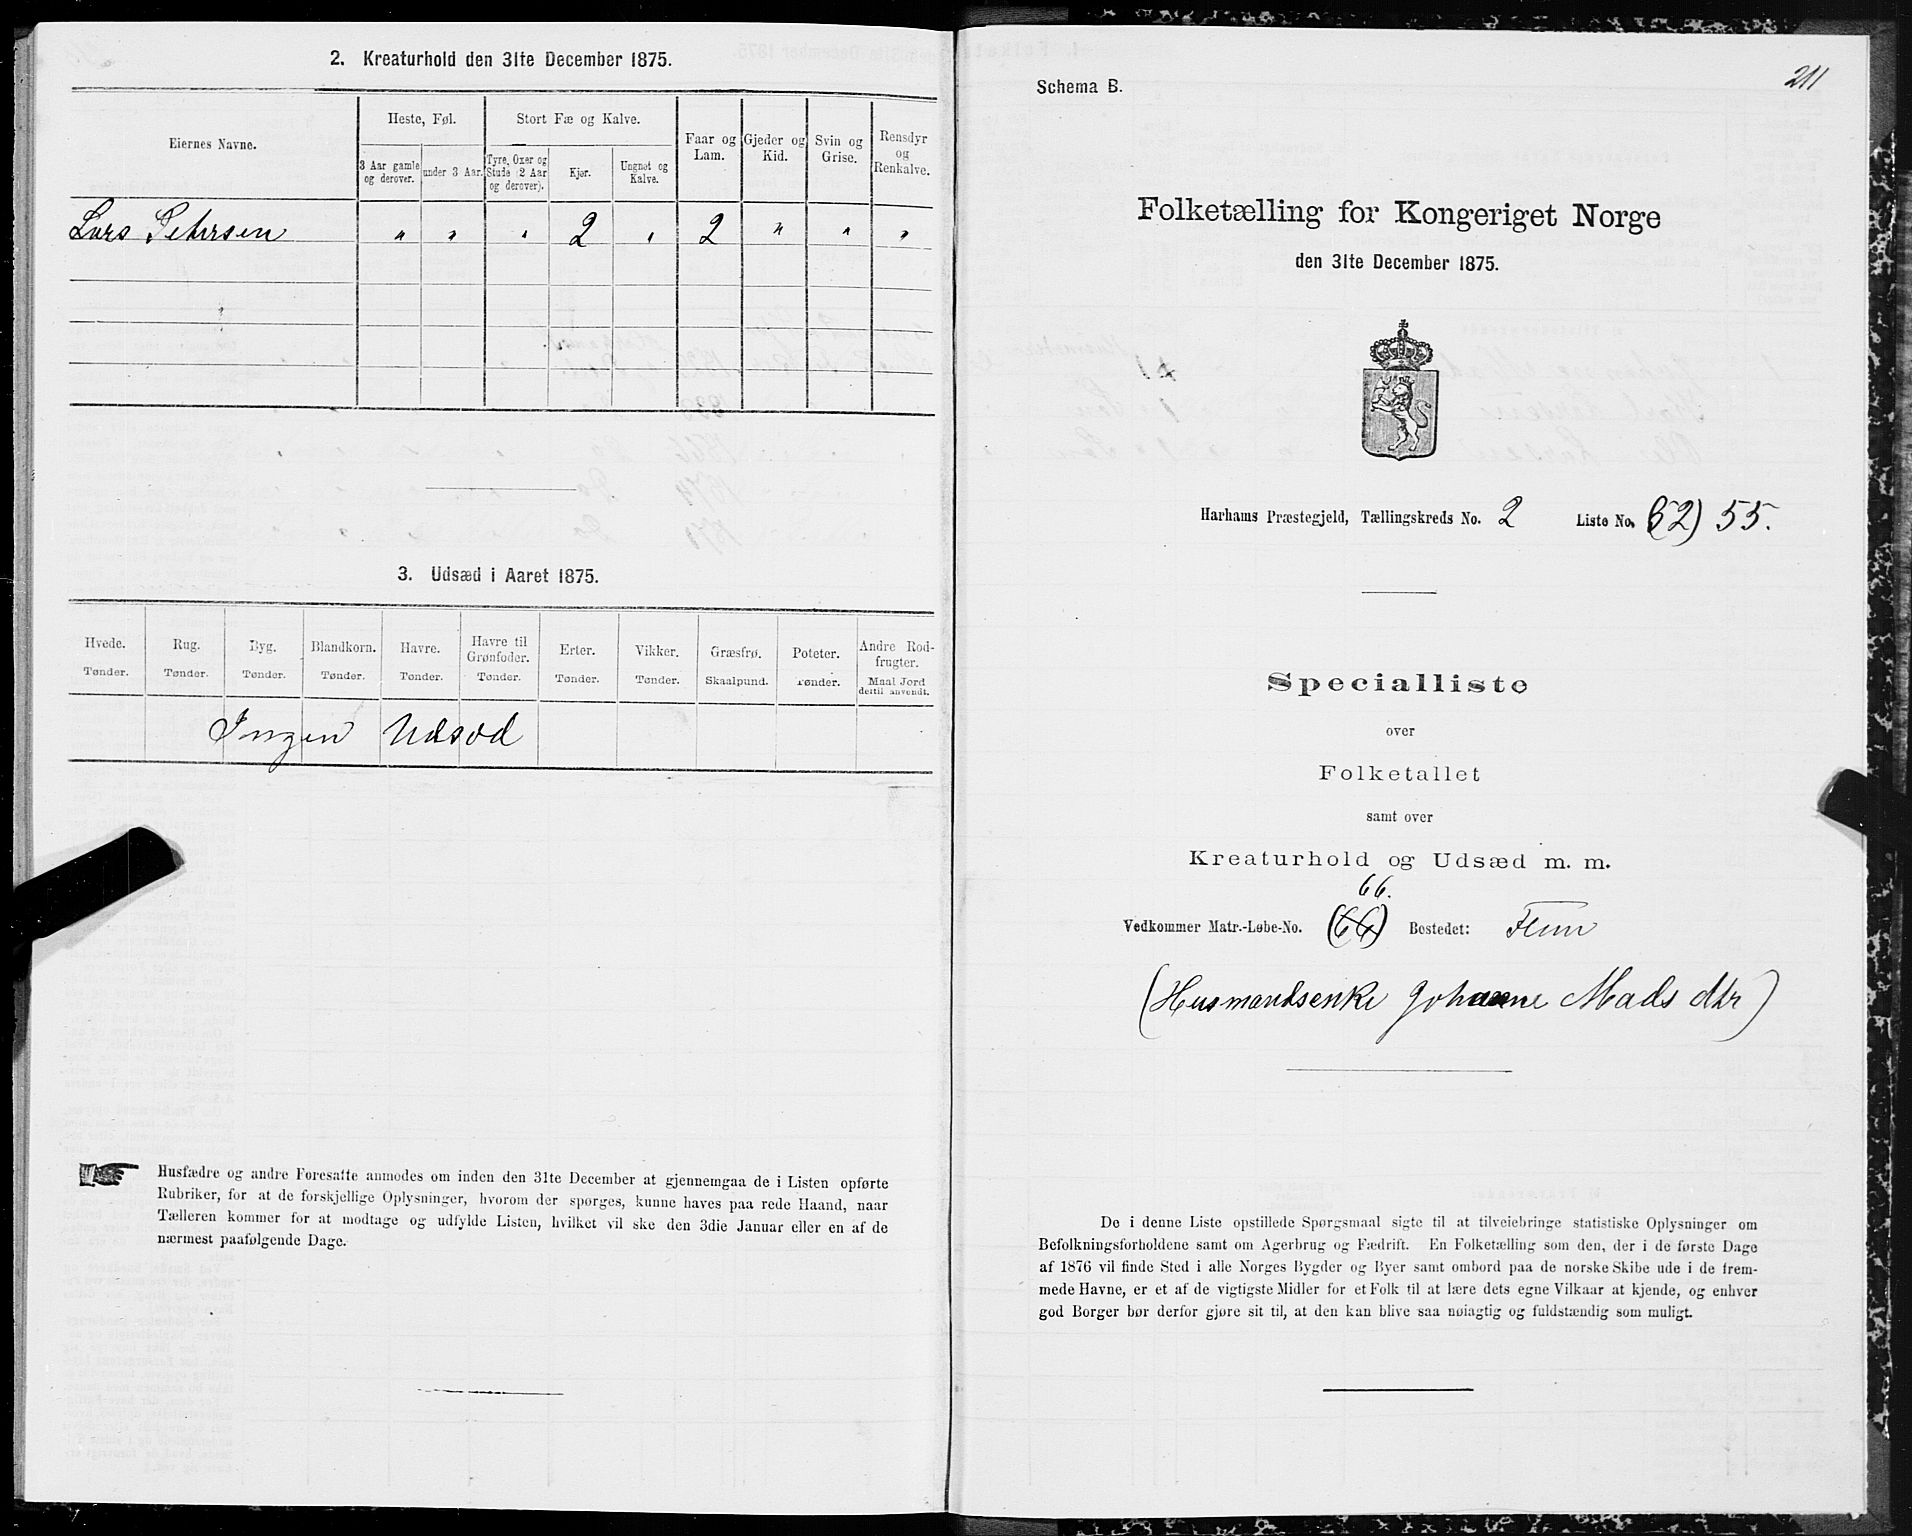 2. Kreaturhold den 31te December 1875.
Eiernes Navne.
Heste, Føl.
Stort Fæ og Kalve.
Faar og Lam.
Gjeder og Kid.
Svin og Grise.
Rensdyr og Renkalve.
3 Aar gamle og derover.
under 3 Aar.
Tyre, Oxer og Stude (2 Aar og derover).
Kjør.
Ungnøt og Kalve.
Lars Petersen " " " 2 " 2 " " "
3. Udsæd i Aaret 1875.
Hvede. Rug. Byg. Blandkorn. Havre. Havre til Grønfoder. Erter. Vikker. Græsfrø. Poteter. Andre Rodfrugter.
Tønder. Tønder. Tønder. Tønder. Tønder. Tønder. Tønder. Tønder. Skaalpund. Tønder. Maal Jord dertil anvendt.
Ingen Udsæd
Husfædre og andre Foresatte anmodes om inden den 31te December at gjennemgaa de i Listen opførte
Rubriker, for at de forskjellige Oplysninger, hvorom der spørges, kunne haves paa rede Haand, naar
Tælleren kommer for at modtage og udfylde Listen, hvilket vil ske den 3die Januar eller en af de
nærmest paafølgende Dage.
211
Schema B.
Folketælling for Kongeriget Norge
den 31te December 1875.
Harhams Præstegjeld, Tællingskreds No. 2 Liste No. (52) 55.
Specialliste
over
Folketallet
samt over
Kreaturhold og Udsæd m. m.
66.
Vedkommer Matr.-Løbe-No. (66) Bostedet: Flem
(Husmandsenke Johanne Mads dtr)
De i denne Liste opstillede Spørgsmaal sigte til at tilveiebringe statistiske Oplysninger om
Befolkningsforholdene samt om Agerbrug og Fædrift. En Folketælling som den, der i de første Dage
af 1876 vil finde Sted i alle Norges Bygder og Byer samt ombord paa de norske Skibe ude i de frem-
mede Havne, er et af de vigtigste Midler for et Folk til at lære dets egne Vilkaar at kjende, og enhver
god Borger bør derfor gjøre sit til, at den kan blive saa nøiagtig og fuldstændig som muligt.